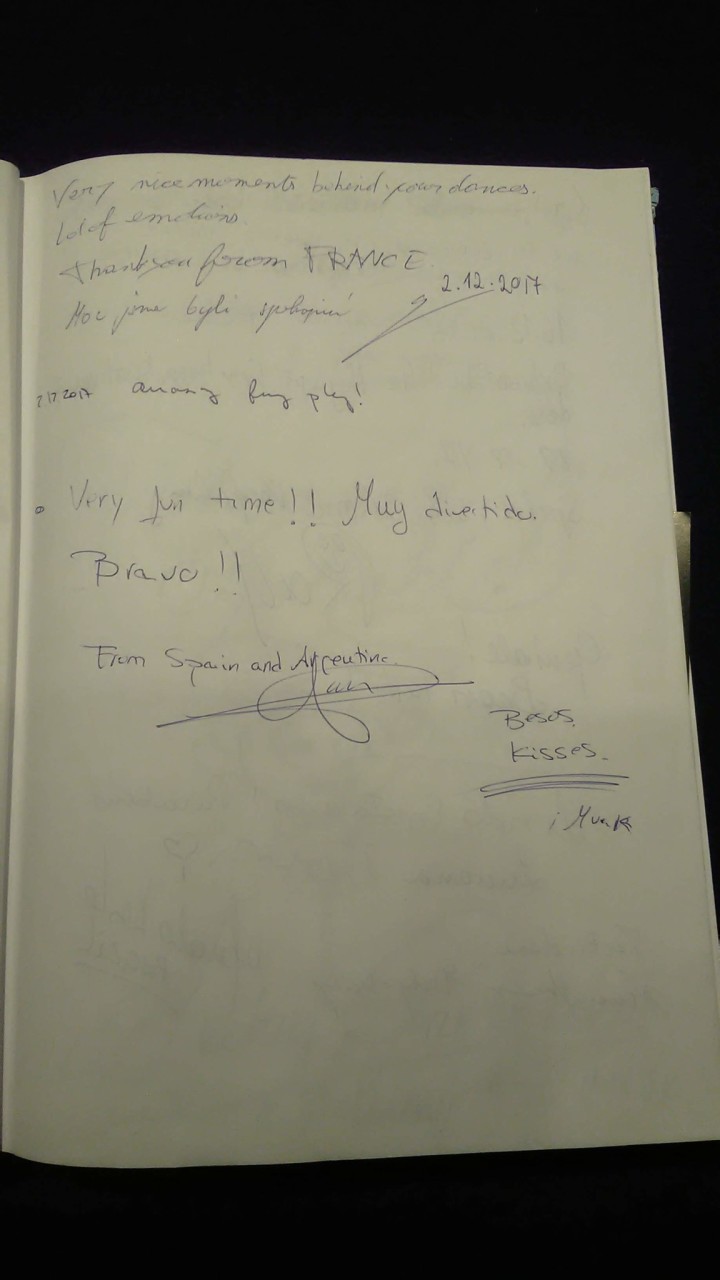 Very nice moments behind your dances.
lot of emotions.
Thank you from FRANCE
2.12.2017
Moc jsme byli spokojení
2/12 2017 play!
Very fun time!! Muy divertido.
Bravo!!
From Spain and Argentina.
Besos.
Kisses.
¡Muak